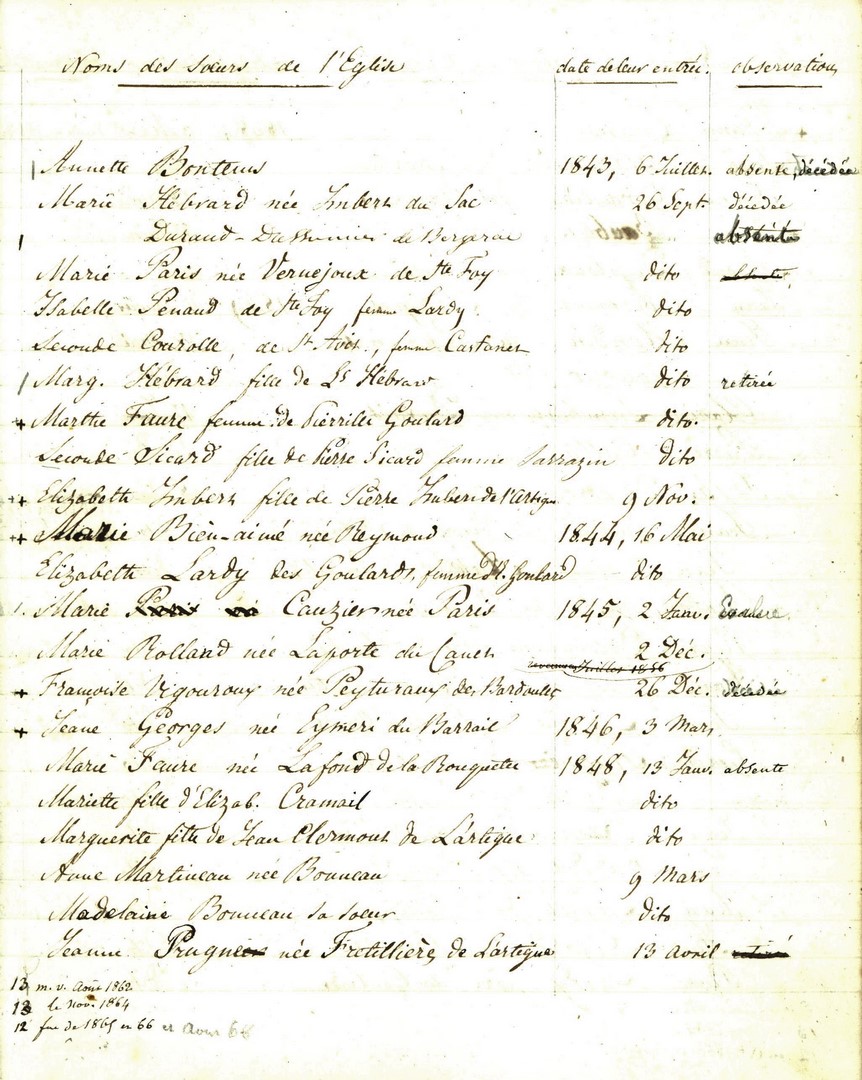 Noms des sœurs de l'Eglise date de leur entrée. observation
Annette Bontems 1843, 6 Juillet. absente, décédée
Marie Hébrard née Imbert du Sac 26 Sept. décédée
Durand- de Bergerac absente
Marie Paris née Vernejoux de Ste Foy dito
Isabelle Penaud de Ste Foy femme Lardy dito
Seconde Courolle, de St Avit, femme Castanet dito
Marg. Hébrard fille de Ls Hébrard dito retirée
+ Marthe Faure femme de Pierrille Goulard dito.
Seconde Sicard fille de Pierre Sicard femme Sarrazin dito
++ Elizabeth Imbert fille de Pierre Imbert de l'Artigue 9 Nov.
++ Marie Bien-aimé née Reymond 1844, 16 Mai
Elizabeth Lardy des Goulards, femme Goulard dito
Marie Paris Cauzier née Paris 1845, 2 Janv.
Marie Rolland née Laporte du Canet 2 Déc.
Juillet 1856
+ Françoise Vigouroux née Peyturaux des Bardoulets 26 Déc. décédée
+ Jeane Georges née Eymeri du Barrail 1846, 3 Mars
Marie Faure née Lafond de la Rouquette 1848, 13 Janv. absente
Mariette fille d'Elizab. Cramail dito
Marguerite fille de Jean Clermont de Lartigue dito
Anne Martineau née Bonneau 9 Mars
Madelaine Bonneau sa sœur dito
Jeanne née Fretillière, de Lartigue 13 avril retirée
13 m. v. Août 1862
13 le Nov. 1864
12 fne de 1865 en 66 et Avril 66